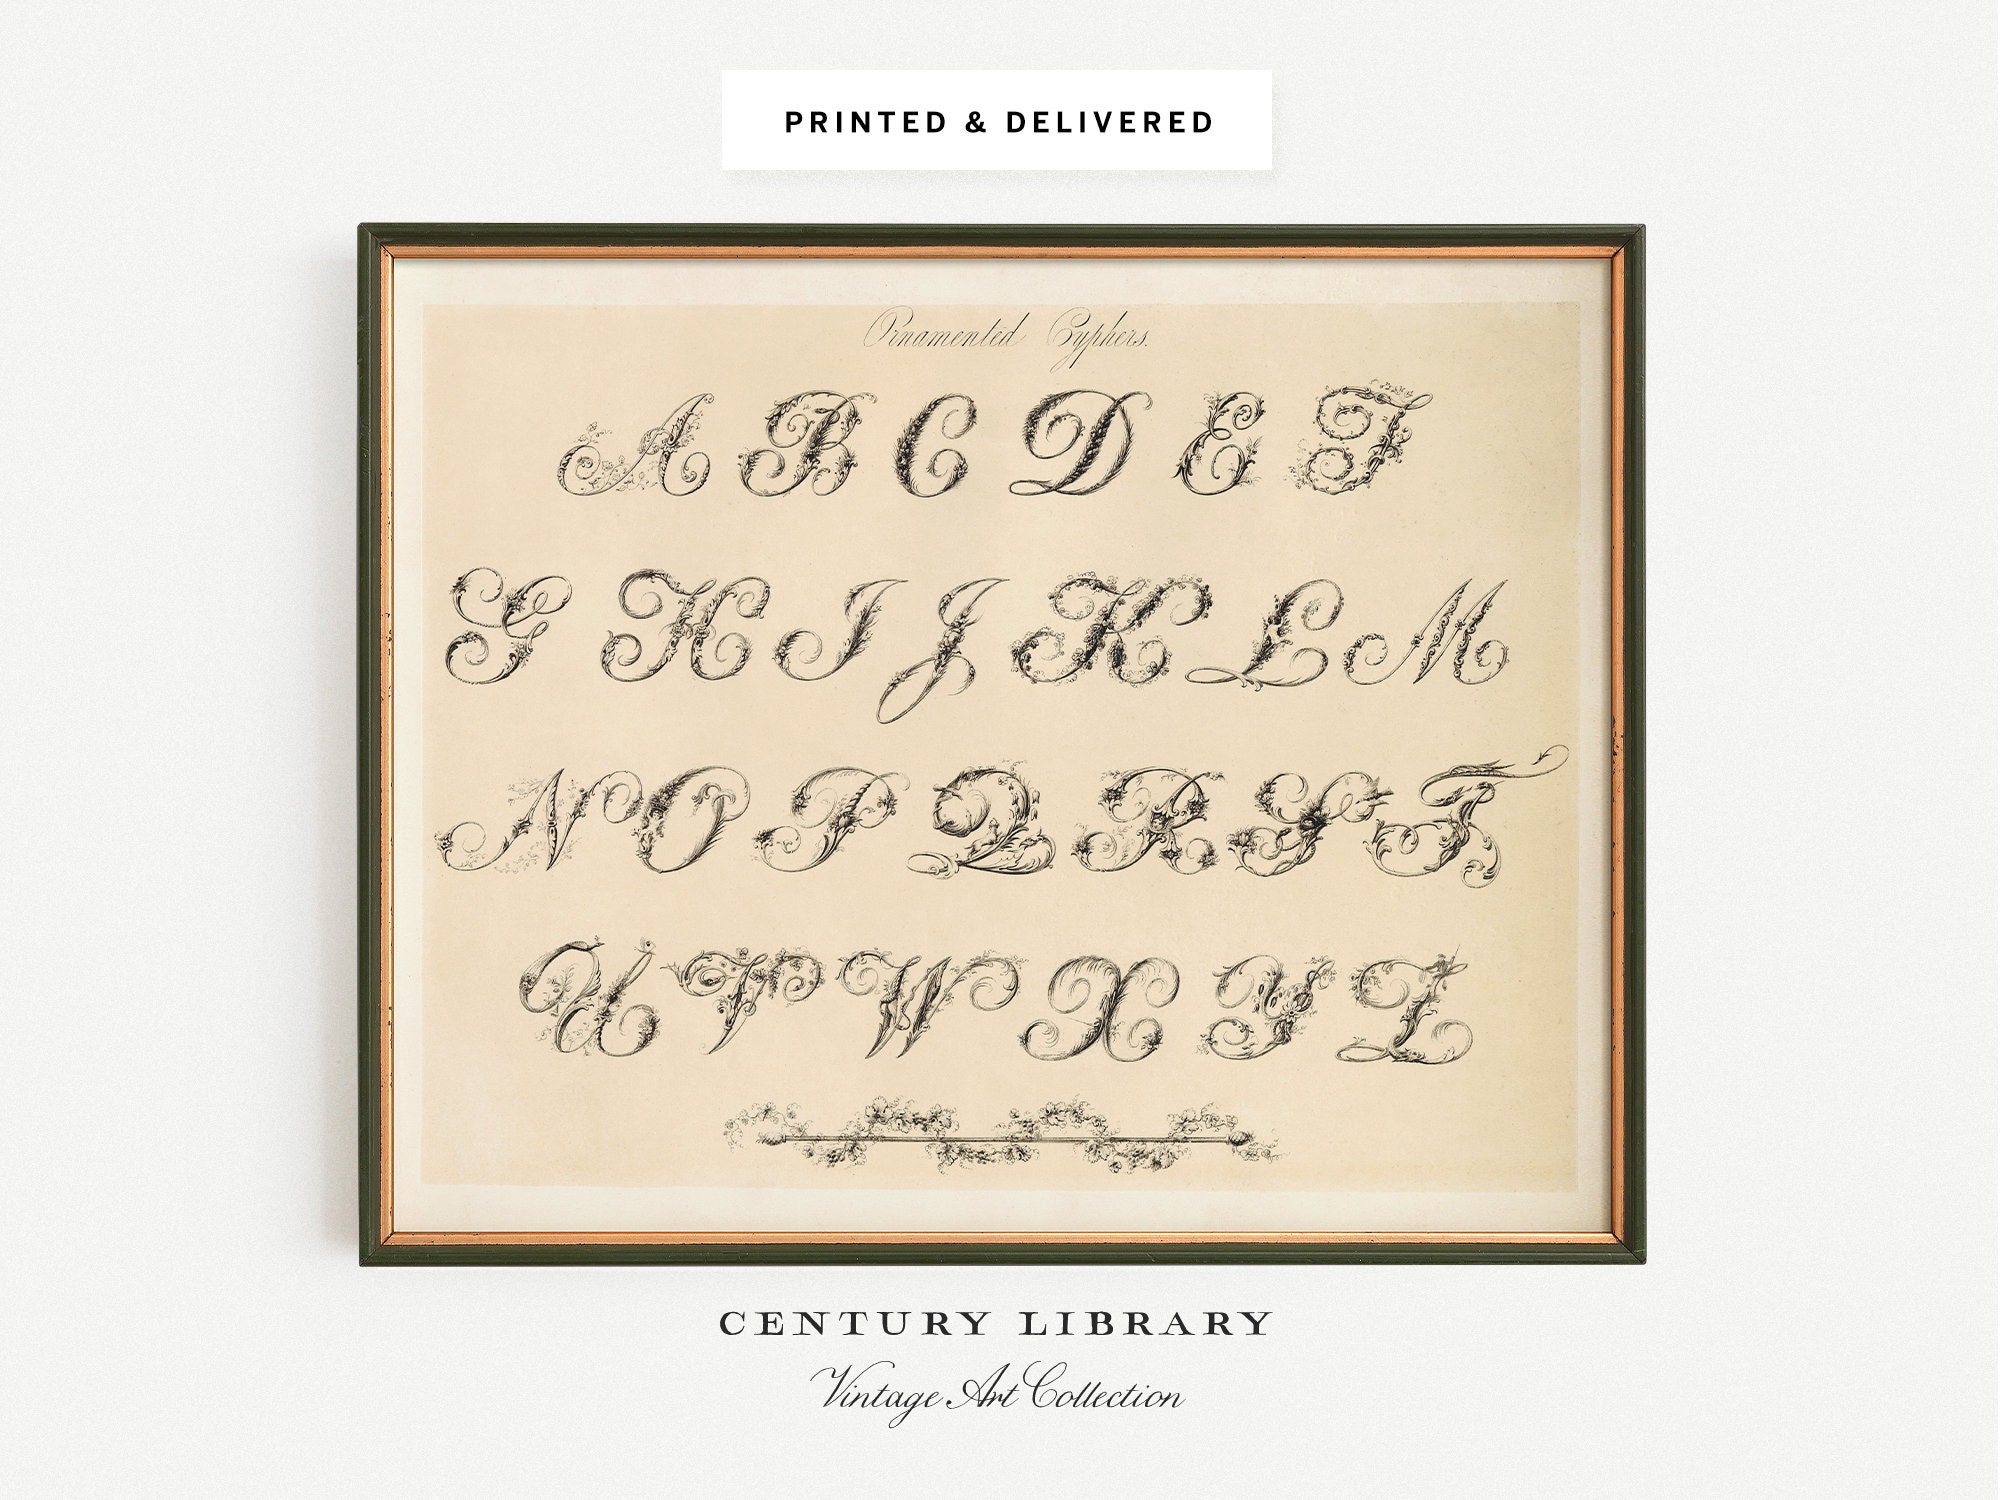 PRINTED & DELIVERED
Ornamented Cyphers.
A B C D E F
G H I J K L M
N O P Q R S T
U V W X Y Z
CENTURY LIBRARY
Vintage Art Collection